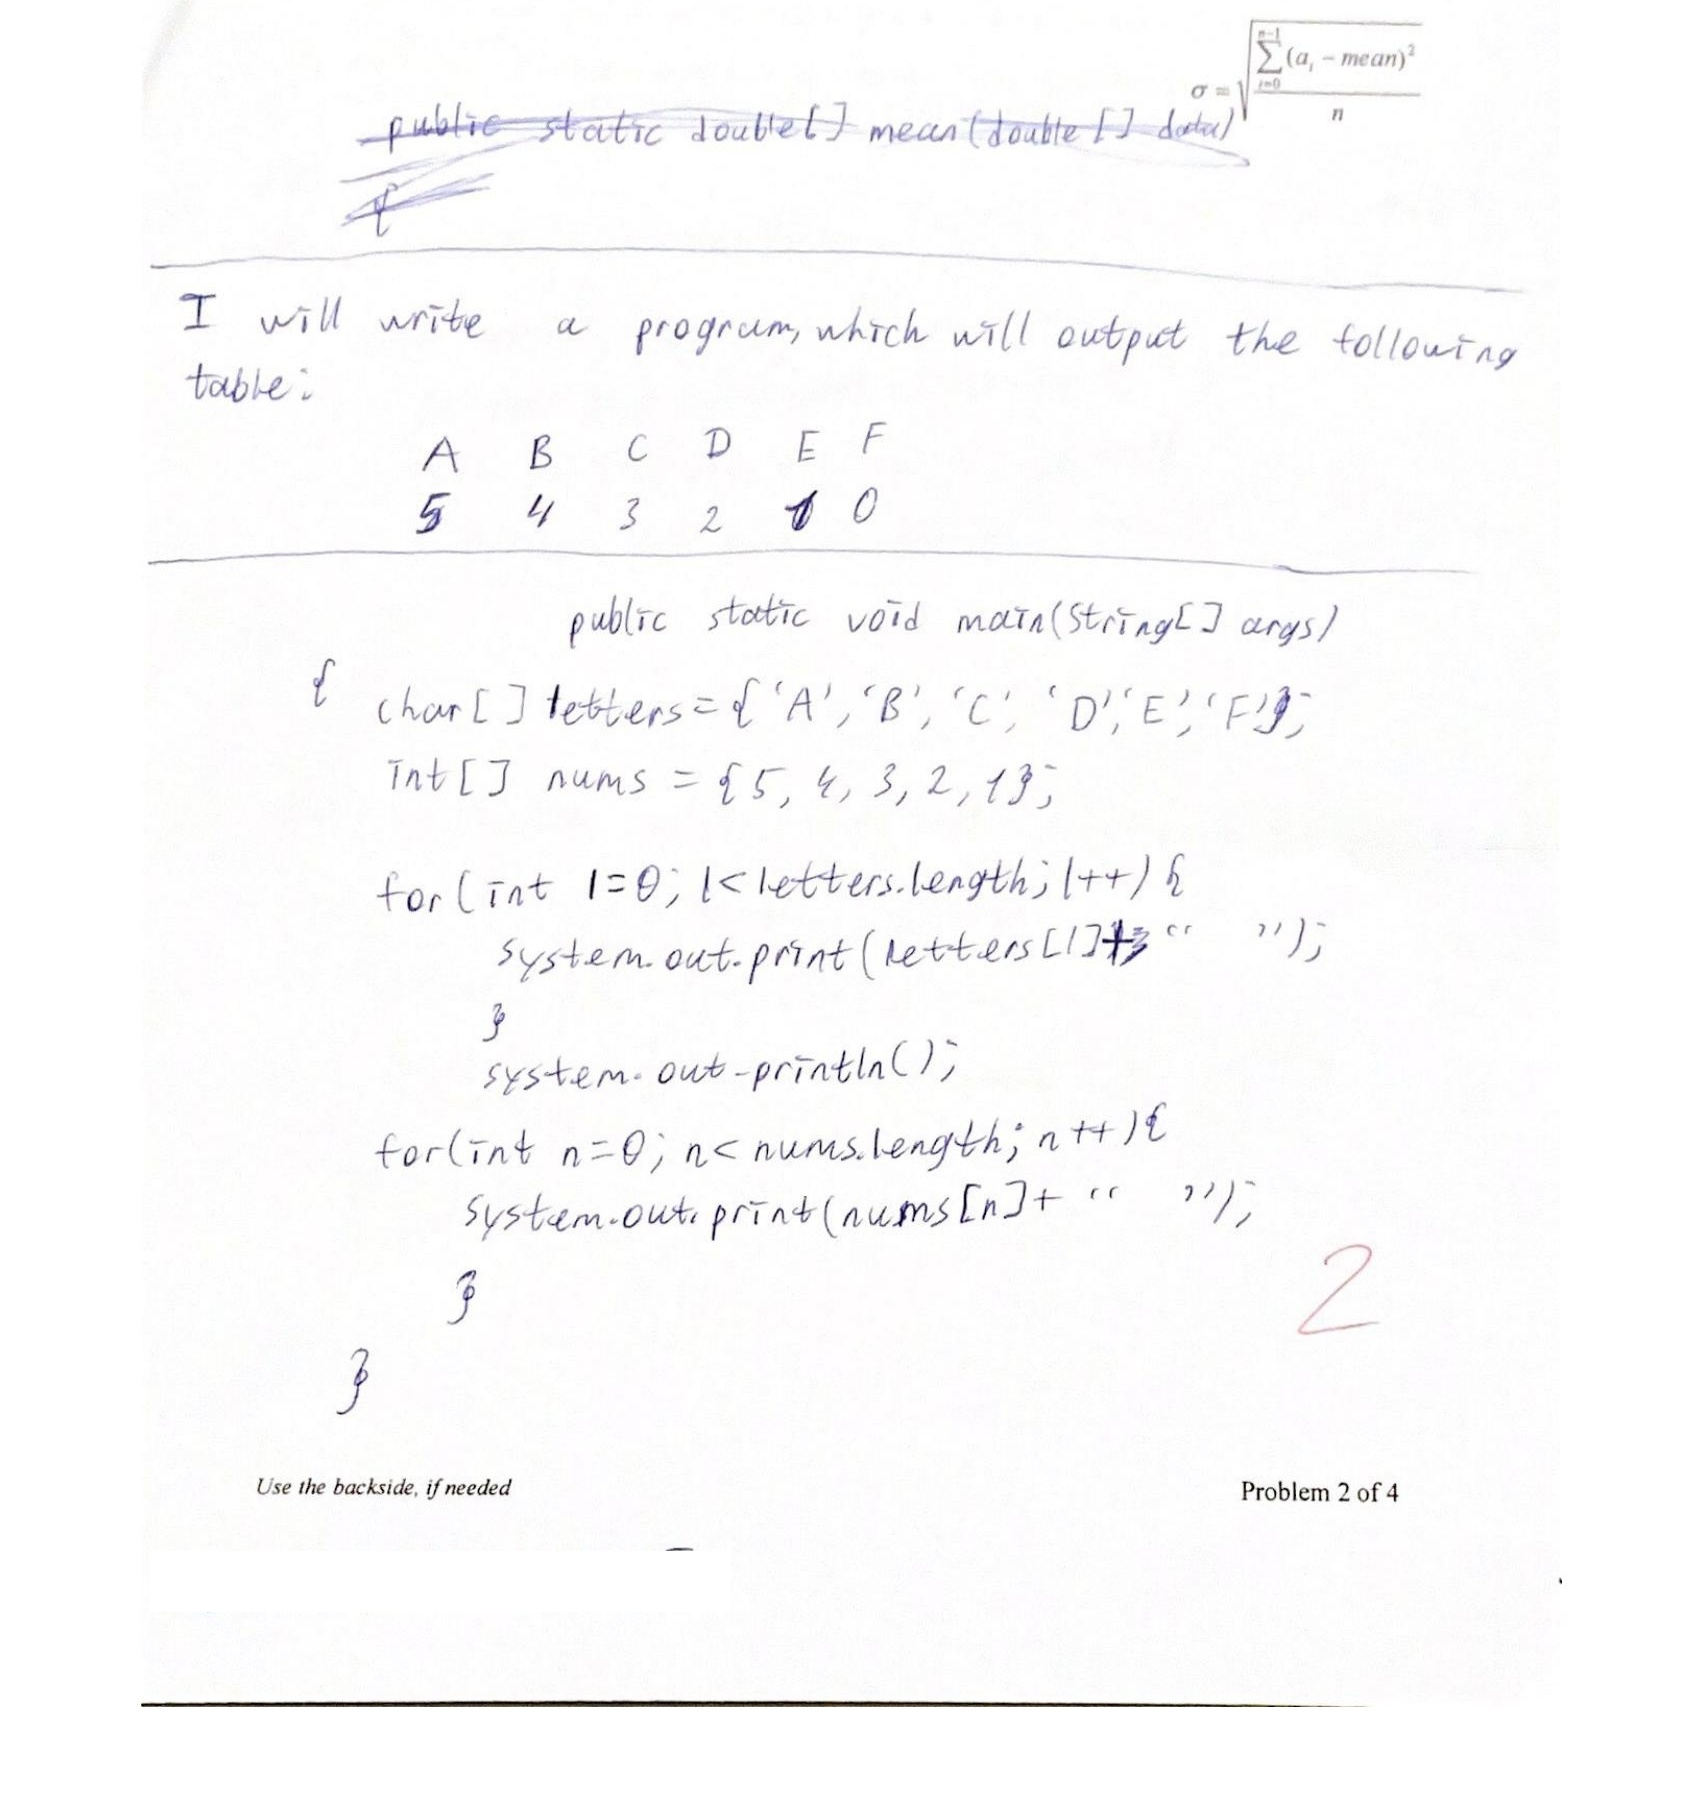 σ = √ n-1 ∑ i=0 (a_i – mean)² / n
public static double[] mean(double [] data)
{
I will write a program, which will output the following
table:
A B C D E F
5 4 3 2 1 0
public static void main(String[] args)
{ char[] letters = {'A', 'B', 'C', 'D', 'E', 'F'};
int[] nums = {5, 4, 3, 2, 1};
for(int l=0; l<letters.length; l++) {
system.out.print(letters[l]+ "   ");
}
system.out.println();
for(int n=0; n< nums.length; n++){
system.out.print(nums[n]+ "   ");
}
2
}
Use the backside, if needed Problem 2 of 4